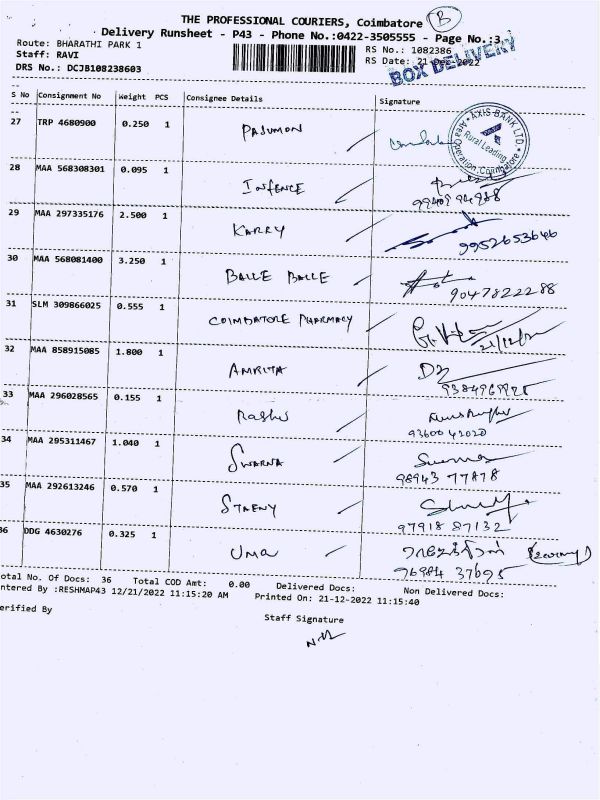 THE PROFESSIONAL COURIERS, Coimbatore B
Delivery Runsheet - P43 - Phone No.:0422-3505555 - Page No.:3
Route: BHARATHI PARK 1
RS No.: 1082386
Staff: RAVI
RS Date: 21-Dec-2022
DRS No.: DCJB108238603
BOX DELIVERY
S No Consignment No Weight PCS Consignee Details Signature
27 TRP 4680900 0.250 1 PASUMON
AXIS BANK LTD.
Rural Lending
Area Operation, Coimbatore
28 MAA 568308301 0.095 1 INFENCE
29 MAA 297335176 2.500 1 KARRY
9952653646
30 MAA 568081400 3.250 1 BALLE BALLE
9047822288
31 SLM 309866025 0.555 1 COIMBATORE PHARMACY
21/12/22
32 MAA 858915085 1.800 1 AMRITA
33 MAA 296028565 0.155 1 Rashi
93600 42020
34 MAA 295311467 1.040 1 SWARNA
98943 77878
35 MAA 292613246 0.570 1 STRENY
97918 87132
36 DDG 4630276 0.325 1 UMA
76984 37695
otal No. Of Docs: 36 Total COD Amt: 0.00 Delivered Docs: Non Delivered Docs:
ntered By :RESHMAP43 12/21/2022 11:15:20 AM Printed On: 21-12-2022 11:15:40
erified By
Staff Signature